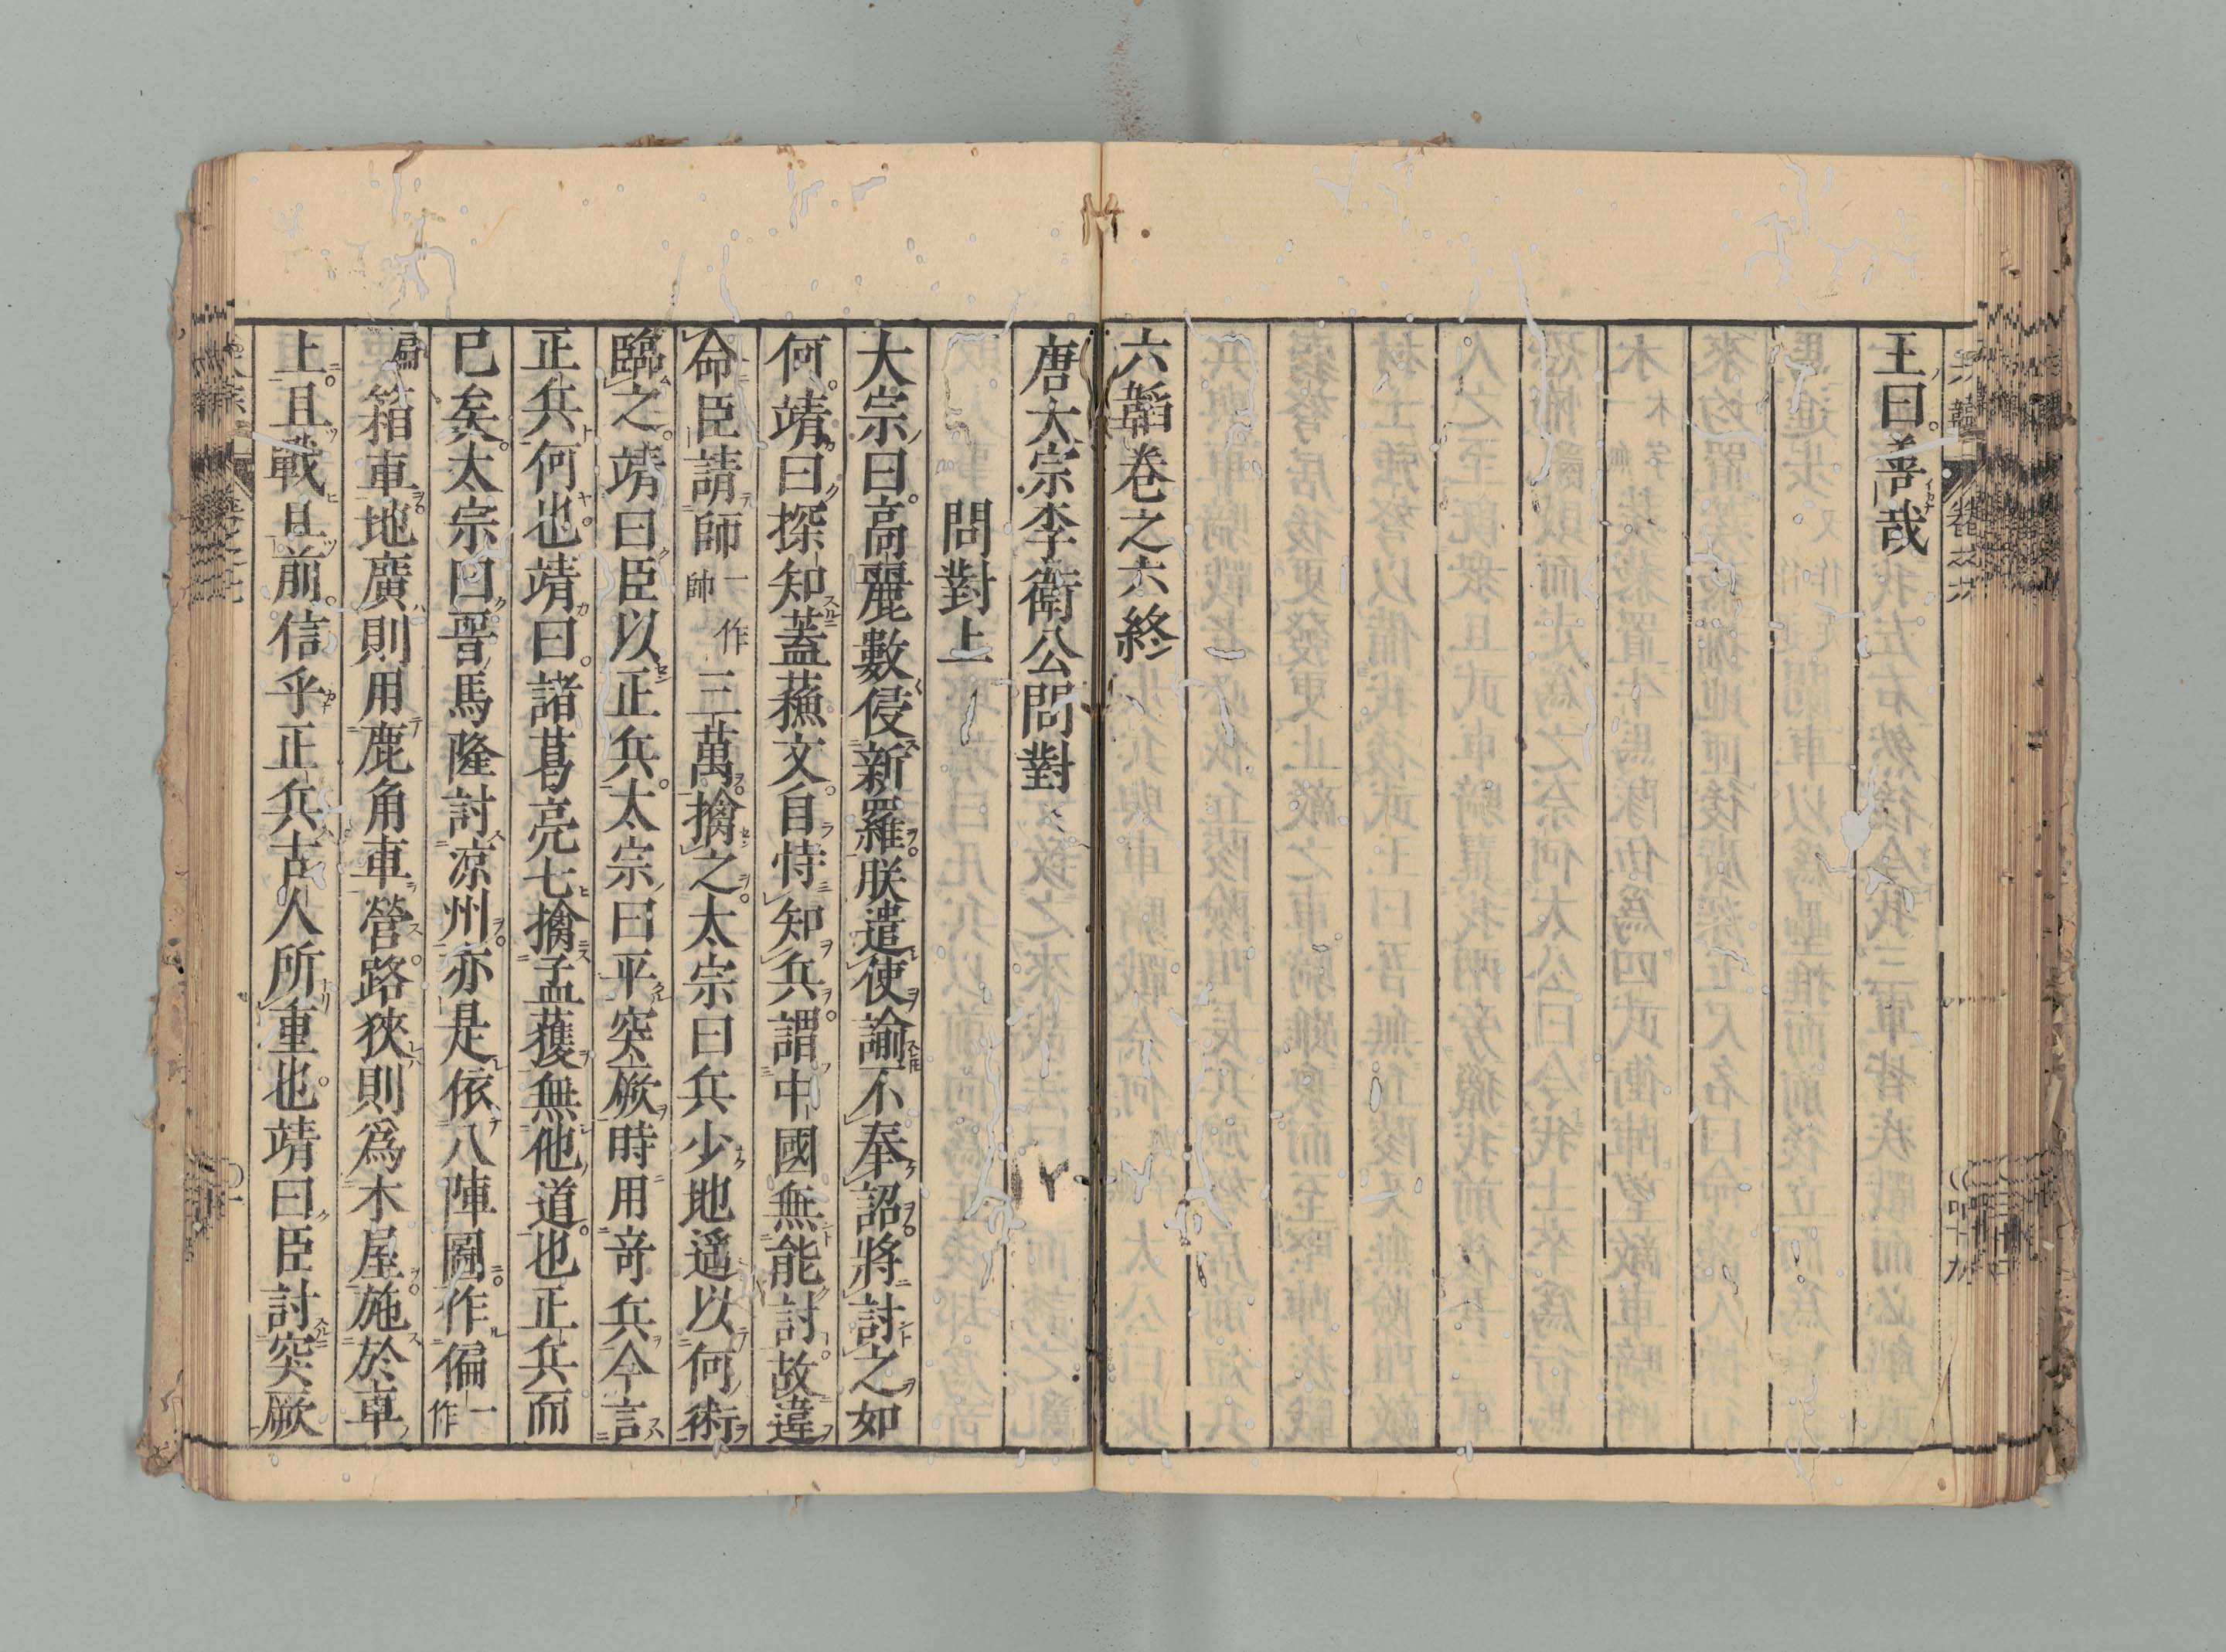 王曰善哉
六韜卷之六終
唐太宗李衛公問對
問對上
大宗曰高麗數侵新羅朕遣使諭不奉詔將討之如
何靖曰探知蓋蘓文自恃知兵謂中國無能討故違
命臣請師一作帥三萬擒之太宗曰兵少地遥以何術
臨之靖曰臣以正兵太宗曰平突厥時用竒兵今言
正兵何也靖曰諸葛亮七擒孟獲無他道也正兵而
已矣太宗曰晉馬隆討凉州亦是依八陣圖作偏一作
扁箱車地廣則用鹿角車營路狹則爲木屋施於車
上且戰且前信乎正兵古人所重也靖曰臣討突厥